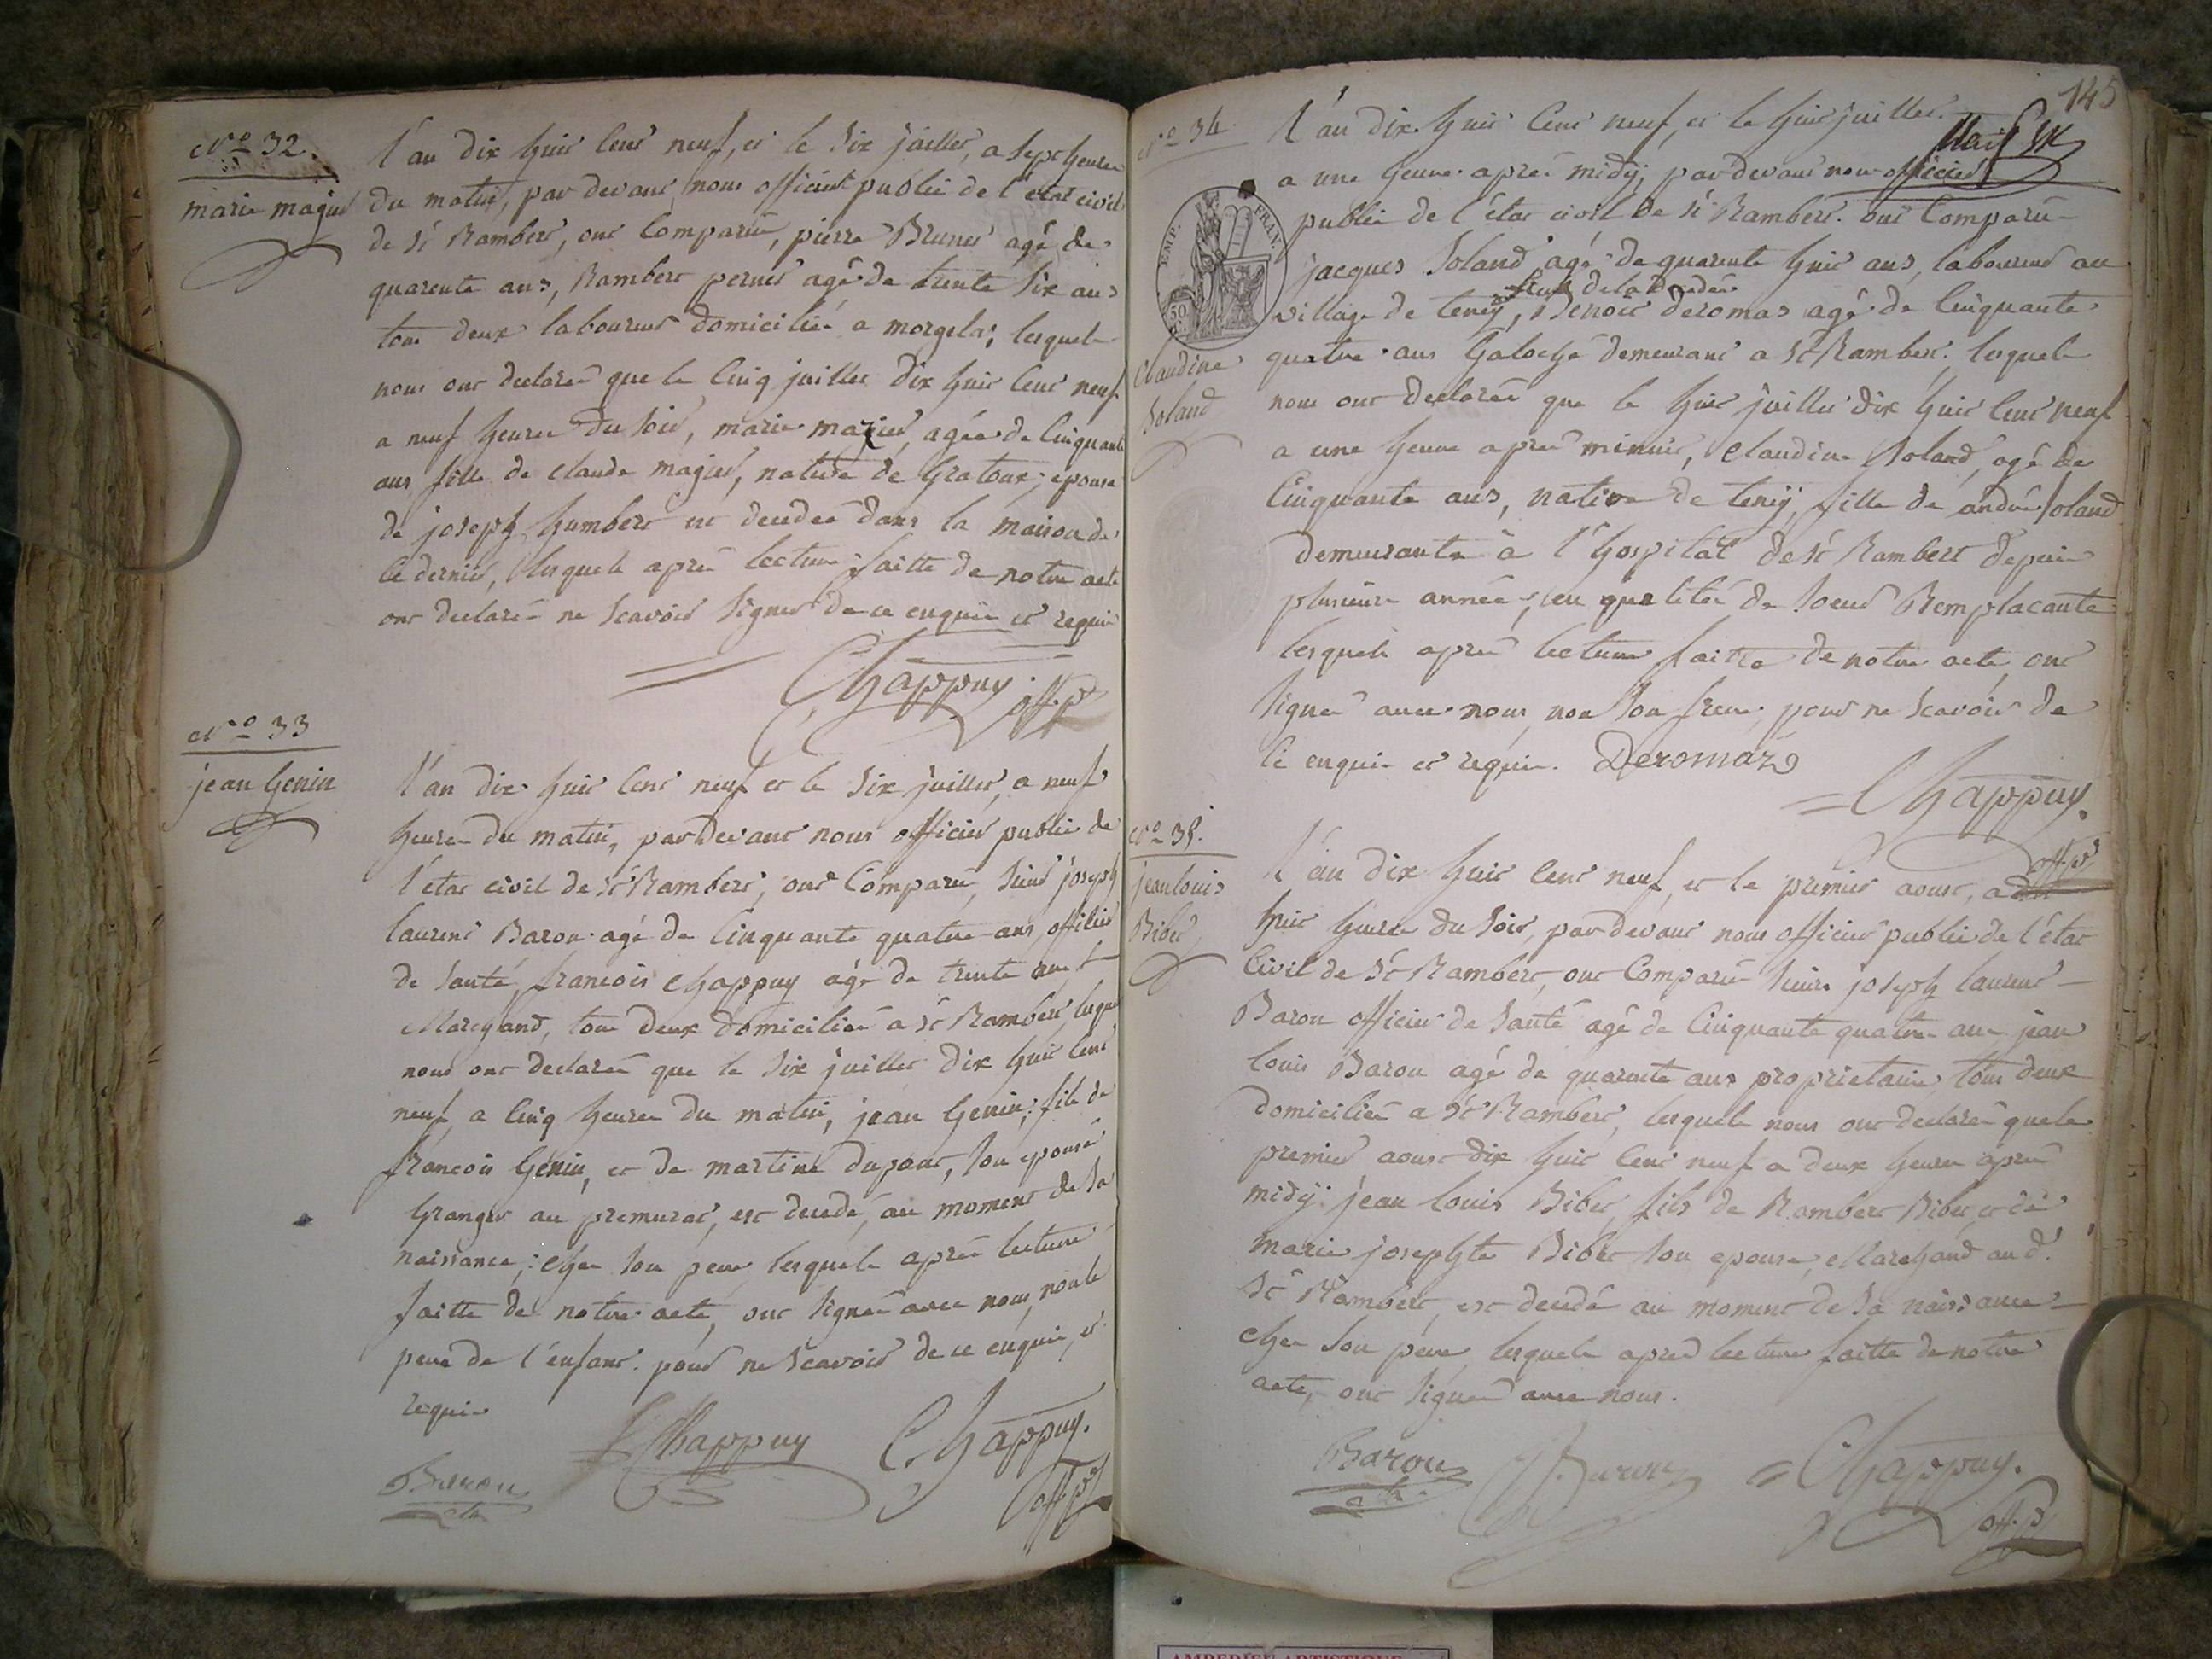 N.o 32.
marie magnid
l'an dix huit cent neuf, et le six juillet, a sept heures
du matin, par devant nous officier public de l'état civil
de St Rambert, ont comparu, pierre Brunet agé de
quarente ans, Rambert pernet agé de trente six ans
tous deux laboureurs domiciliés a morgelas, lesquels
nous ont declarés que le cinq juillet dix huit cent neuf
a neuf heures du soir, marie magied, agée de cinquante
ans fille de claude magied, native de Gratoux, epouse
de joseph humbert est decedée dans la maison de
ce dernier, lesquels aprés lecture faitte de notre acte
ont declarés ne scavoir signer de ce enquis et requis
Chappuy off. p.
N.o 33
jean Genin
l'an dix huit cent neuf et le six juillet, a neuf
heures du matin, par devant nous officier public de
l'état civil de St Rambert, ont comparu, sieur joseph
laurent Baron agé de cinquante quatre ans, officier
de santé, francois chappuy agé de trente ans
Marchand, tous deux domiciliés a St Rambert, lesquels
nous ont declarés que le six juillet dix huit cent
neuf a cinq heures du matin, jean Genin, fils de
francois Genin, et de martine dupont, son epouse
Granger au premurat, est decedé au moment de sa
naissance, chez son pere lesquels aprés lecture
faitte de notre acte, ont signés avec nous, non le
pere de l'enfant pour ne scavoir de ce enquis, et
requis
Chappuy Chappuy.
Baron off. p.
145
N.o 34
l'an dix huit cent neuf, et le huit juillet.
a une heure aprés midy, par devant nous officier
EMP. FRAN.
50
public de l'état civil de St Rambert. ont comparu
jacques Soland agé de quarente huit ans, laboureur au
de la decedée
village de teney, Benoit deromas agé de cinquante
Claudine
Soland
quatre ans Galoché demeurant a St Rambert. lesquels
nous ont declarés que le huit juillet dix huit cent neuf
a une heure aprés minuit, claudine Soland, agé de
cinquante ans, native de teney, fille de andré Soland
demeurante à l'hospital de St Rambert depuis
plusieurs années, en qualité de soeur Remplacante
lesquels aprés lecture faitte de notre acte, ont
signés avec nous, non son frere pour ne scavoir de
ce enquis et requis. Deromaz
Chappuy.
off. p.
N.o 35.
jean louis
Bibet
l'an dix huit cent neuf, et le premier aoust, a
huit heures du soir, par devant nous officier public de l'état
civil de St Rambert, ont comparu sieurs joseph laurent
Baron officier de santé agé de cinquante quatre ans jean
louis Baron agé de quarente ans proprietaire, tous deux
domiciliés a St Rambert, lesquels nous ont declarés que le
premier aoust dix huit cent neuf a deux heures aprés
midy jean louis Bibet, fils de Rambert Bibet, et de
marie josephte Bibet son epouse, Marchand au d.
St Rambert, est decedé au moment de sa naissance
chez son pere, lesquels aprés lecture faitte de notre
acte, ont signés avec nous.
Baron Baron Chappuy.
off. p.
AMBERIEU ARTISTIQUE